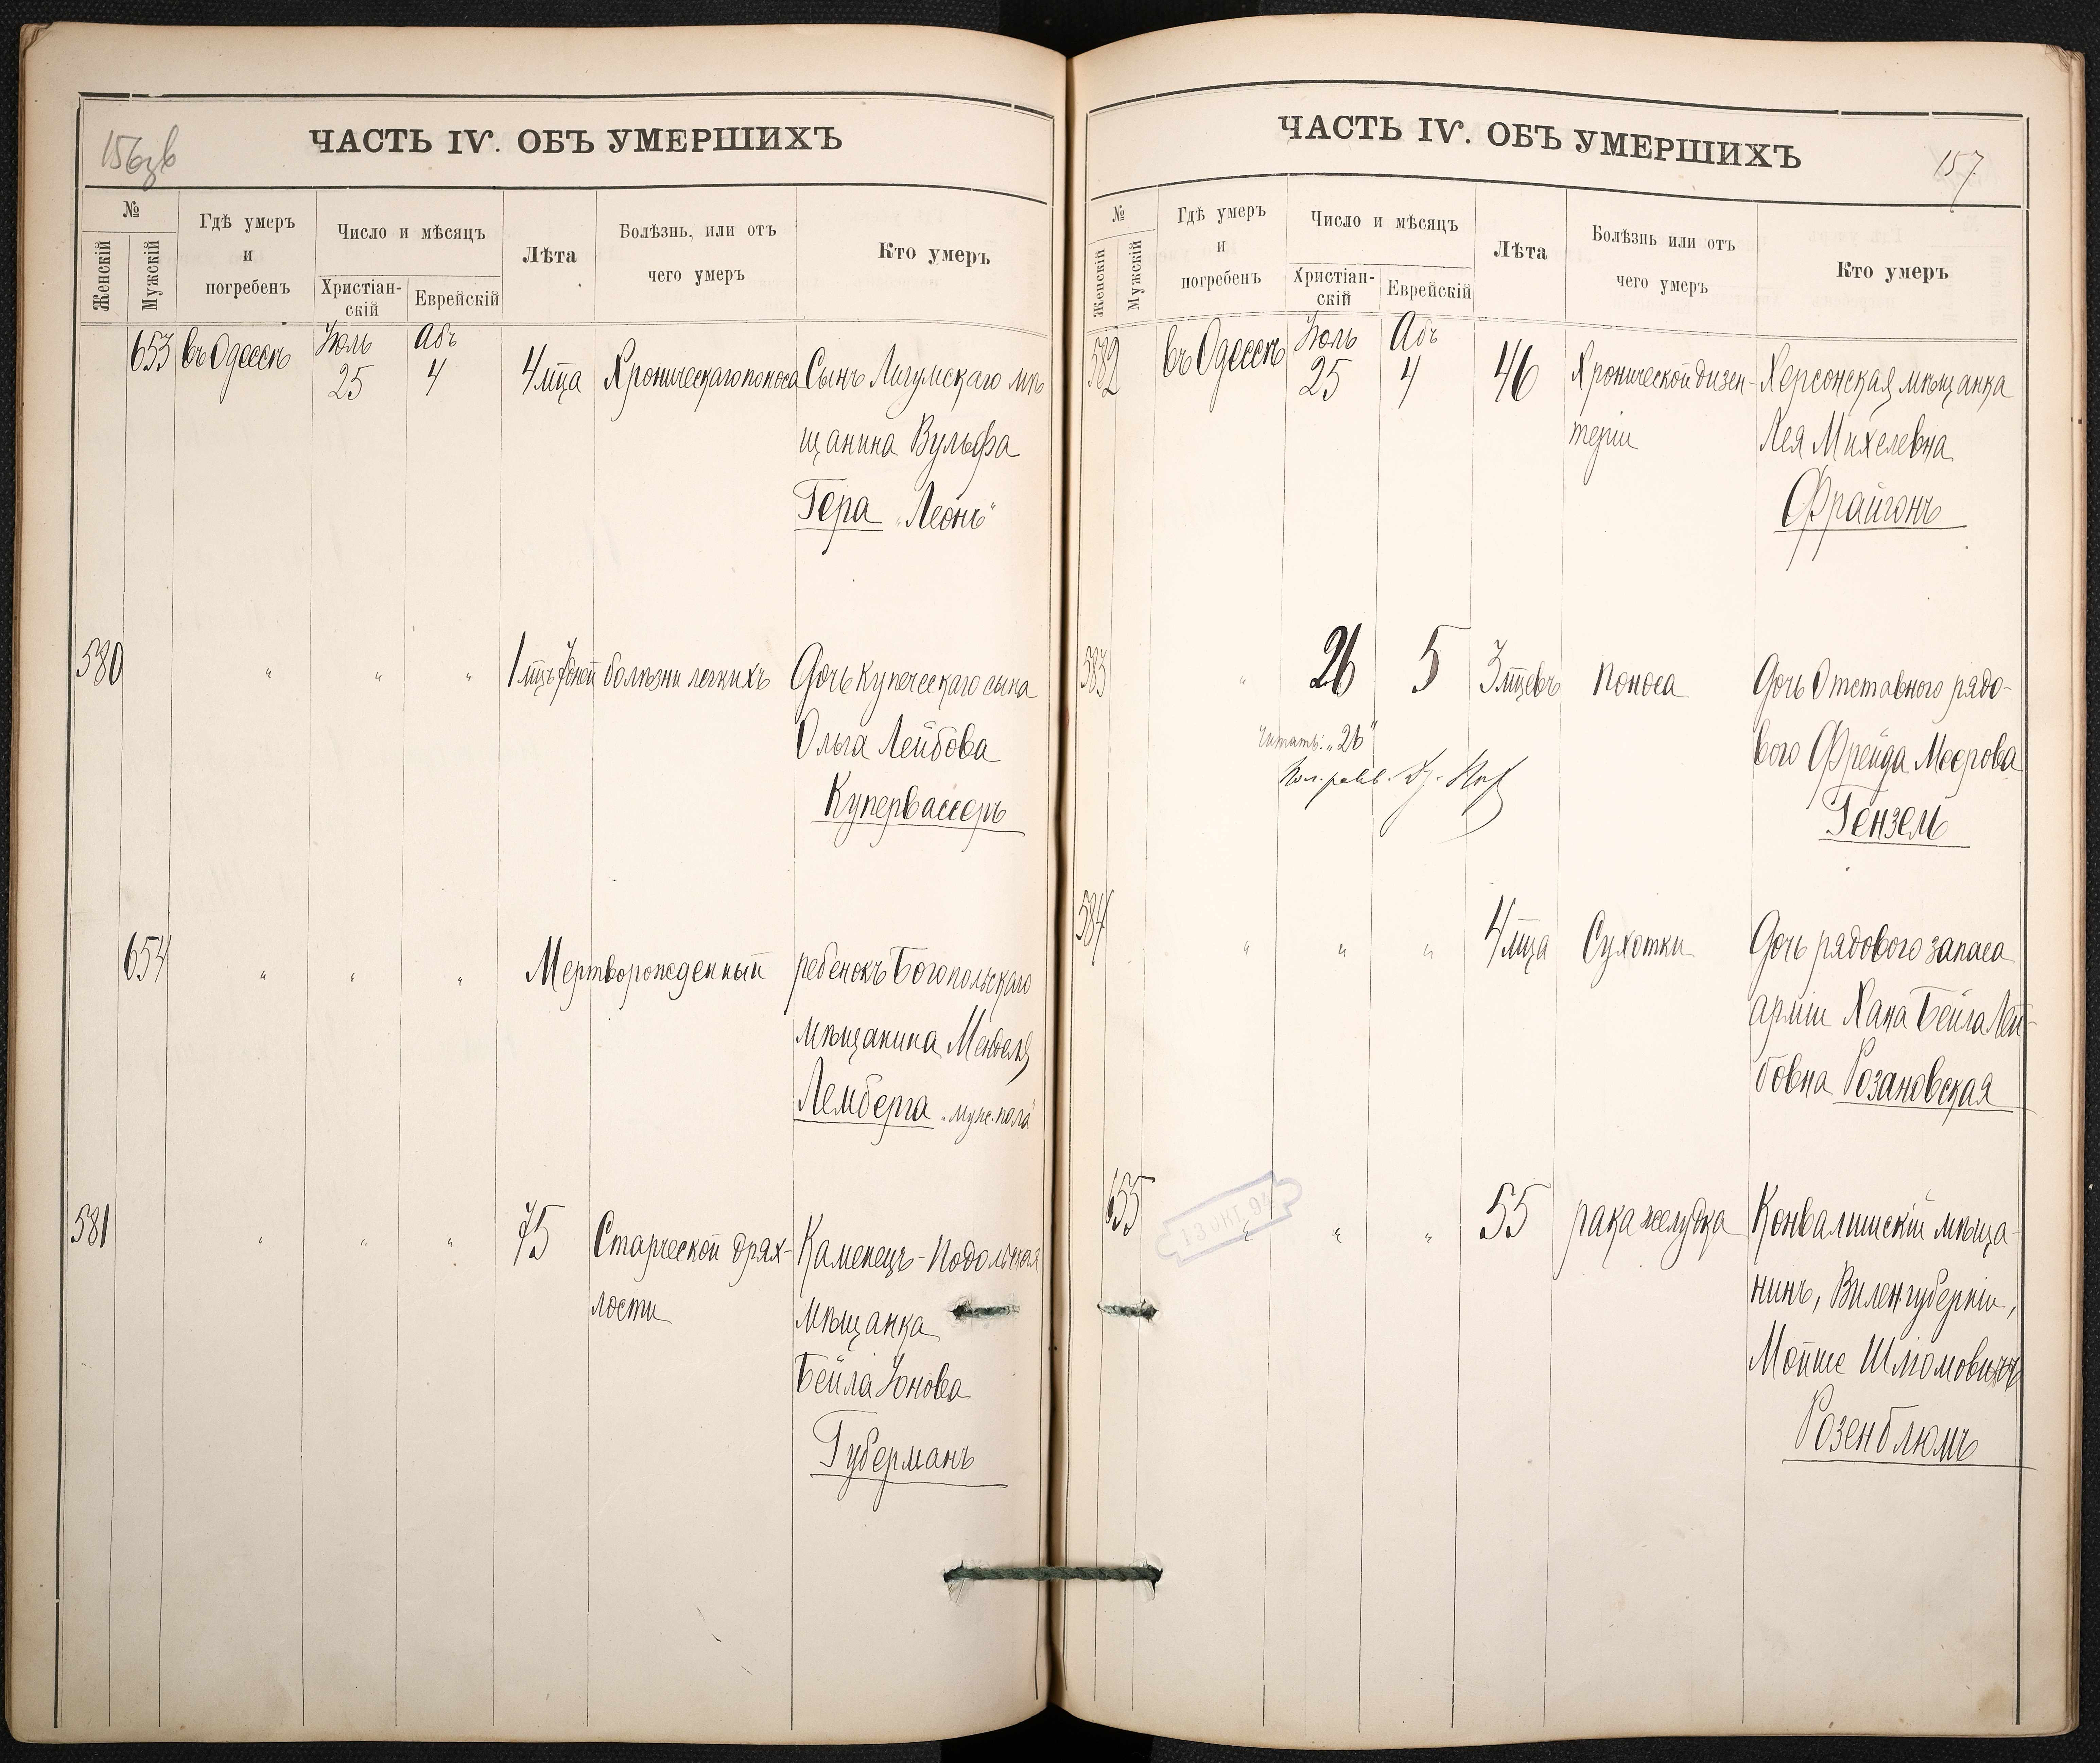 156об
ЧАСТЬ IV. ОБЪ УМЕРШИХЪ
№
Женскій
Мужскій
Гдѣ умеръ
и
погребенъ
Число и мѣсяцъ
Христіан-
скій
Еврейскій
Лѣта
Болѣзнь, или отъ
чего умеръ
Кто умеръ
653 въ Одессѣ Іюль 25 Абъ 4 4 мца Хроническаго поноса Сынъ Лигумскаго мѣ
щанина Вульфа
Гера „Леонъ"
580 " " " 1 мцъ 7 дней болѣзни легкихъ Дочь купеческаго сына
Ольга Лейбова
Купервассеръ
654 " " " Мертворожденный ребенокъ Богопольскаго
мѣщанина Менделя
Лемберга „муж. пола"
581 " " " 75 Старческой дрях- Каменецъ-Подольская
лости мѣщанка
Бейла Іонова
Губерманъ
ЧАСТЬ IV. ОБЪ УМЕРШИХЪ
157
№
Женскій
Мужскій
Гдѣ умеръ
и
погребенъ
Число и мѣсяцъ
Христіан-
скій
Еврейскій
Лѣта
Болѣзнь или отъ
чего умеръ
Кто умеръ
582 въ Одессѣ Іюль 25 Абъ 4 46 Хронической дизен- Херсонская мѣщанка
теріи Лея Михелевна
Фрайгонъ
583 " 26 5 3 мцевъ Поноса Дочь Отставного рядо-
вого Фрейда Меерова
Гензель
Читать: „26"
584 " " " 4 мца Сухотки Дочь рядового запаса
арміи Хана Бейла Лей-
бовна Розановская
655 " " " 55 рака желудка Конвалишскій мѣща-
нинъ, Вилен. губерніи,
Мойше Шліомовичъ
Розенблюмъ